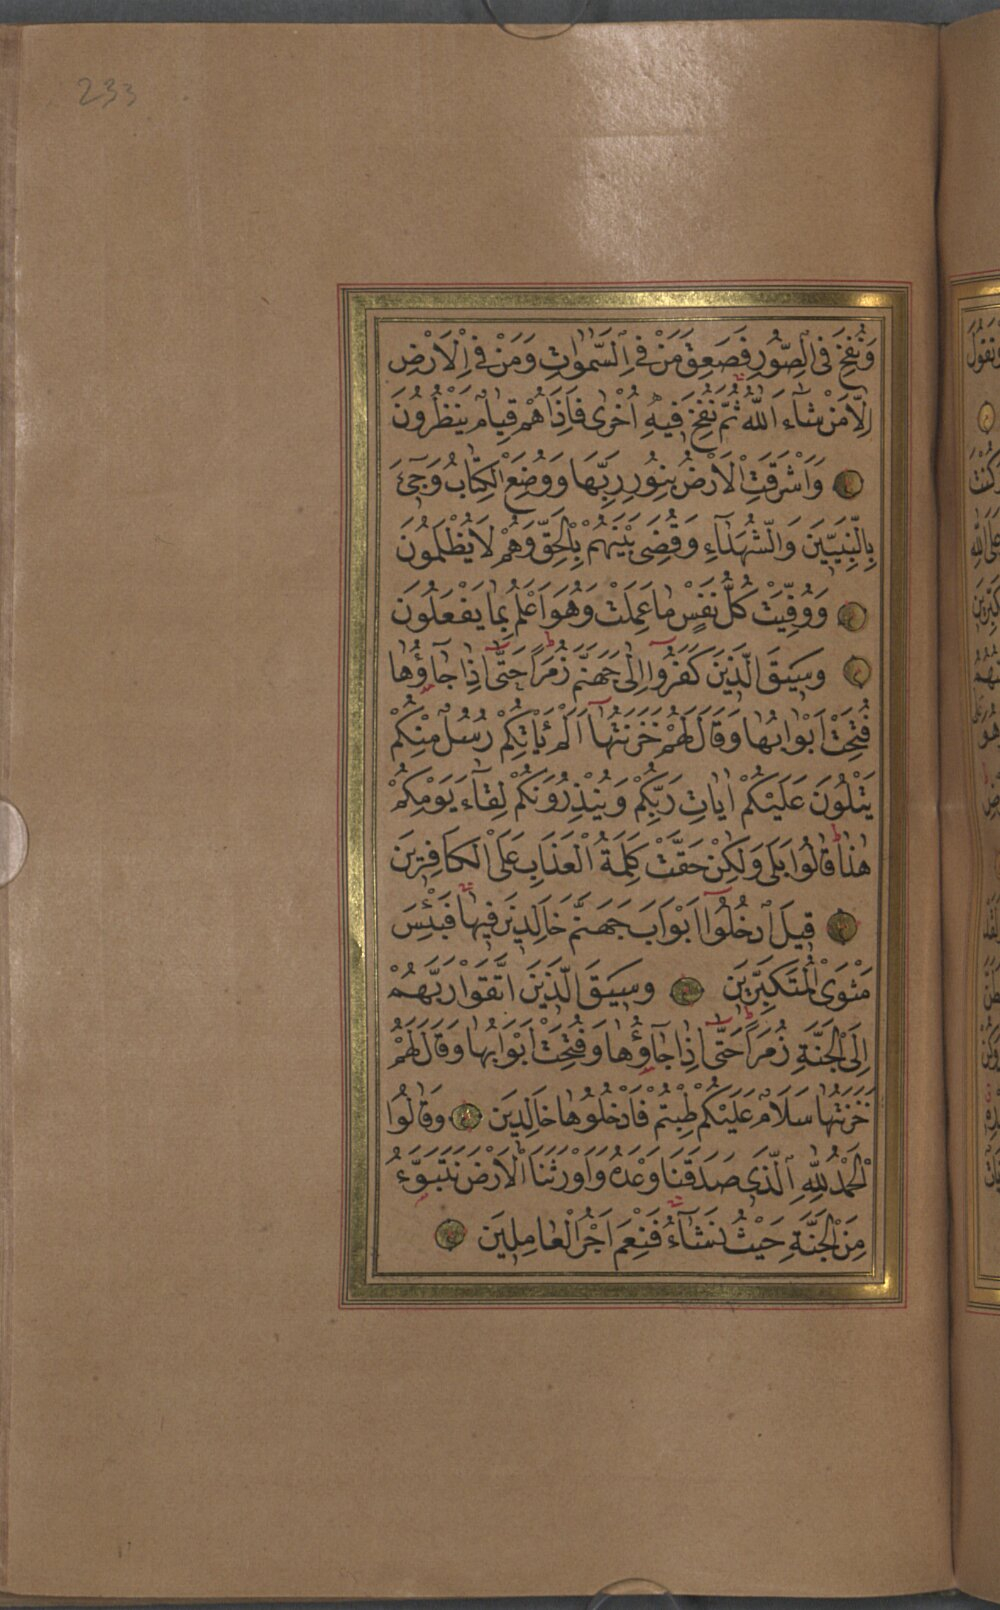 233
وَنُفِخَ فِى الصُّورِ فَصَعِقَ مَنْ فِى السَّمٰوَاتِ وَمَنْ فِى الْاَرْضِ
اِلَّا مَنْ شَٓاءَ اللّٰهُ ثُمَّ نُفِخَ فِيهِ اُخْرٰى فَاِذَا هُمْ قِيَامٌ يَنْظُرُونَ
وَاَشْرَقَتِ الْاَرْضُ بِنُورِ رَبِّهَا وَوُضِعَ الْكِتَابُ وَجِٓىءَ
بِالنَّبِيّٖنَ وَالشُّهَدَٓاءِ وَقُضِىَ بَيْنَهُمْ بِالْحَقِّ وَهُمْ لَا يُظْلَمُونَ
وَوُفِّيَتْ كُلُّ نَفْسٍ مَا عَمِلَتْ وَهُوَ اَعْلَمُ بِمَا يَفْعَلُونَ
وَسٖيقَ الَّذٖينَ كَفَرُٓوا اِلٰى جَهَنَّمَ زُمَرًا حَتّٰٓى اِذَا جَٓاؤُهَا
فُتِحَتْ اَبْوَابُهَا وَقَالَ لَهُمْ خَزَنَتُهَٓا اَلَمْ يَاْتِكُمْ رُسُلٌ مِنْكُمْ
يَتْلُونَ عَلَيْكُمْ اٰيَاتِ رَبِّكُمْ وَيُنْذِرُونَكُمْ لِقَٓاءَ يَوْمِكُمْ
هٰذَا قَالُوا بَلٰى وَلٰكِنْ حَقَّتْ كَلِمَةُ الْعَذَابِ عَلَى الْكَافِرٖينَ
قٖيلَ ادْخُلُٓوا اَبْوَابَ جَهَنَّمَ خَالِدٖينَ فٖيهَا فَبِئْسَ
مَثْوَى الْمُتَكَبِّرٖينَ وَسٖيقَ الَّذٖينَ اتَّقَوْا رَبَّهُمْ
اِلَى الْجَنَّةِ زُمَرًا حَتّٰٓى اِذَا جَٓاؤُهَا وَفُتِحَتْ اَبْوَابُهَا وَقَالَ لَهُمْ
خَزَنَتُهَا سَلَامٌ عَلَيْكُمْ طِبْتُمْ فَادْخُلُوهَا خَالِدٖينَ وَقَالُوا
الْحَمْدُ لِلّٰهِ الَّذٖى صَدَقَنَا وَعْدَهُ وَاَوْرَثَنَا الْاَرْضَ نَتَبَوَّءُ
مِنَ الْجَنَّةِ حَيْثُ نَشَٓاءُ فَنِعْمَ اَجْرُ الْعَامِلٖينَ